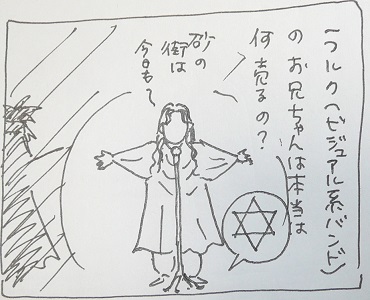 ラルク(ビジュアル系バンド)
のお兄ちゃんは本当は
何売るの?
砂の
街は
今日も〜